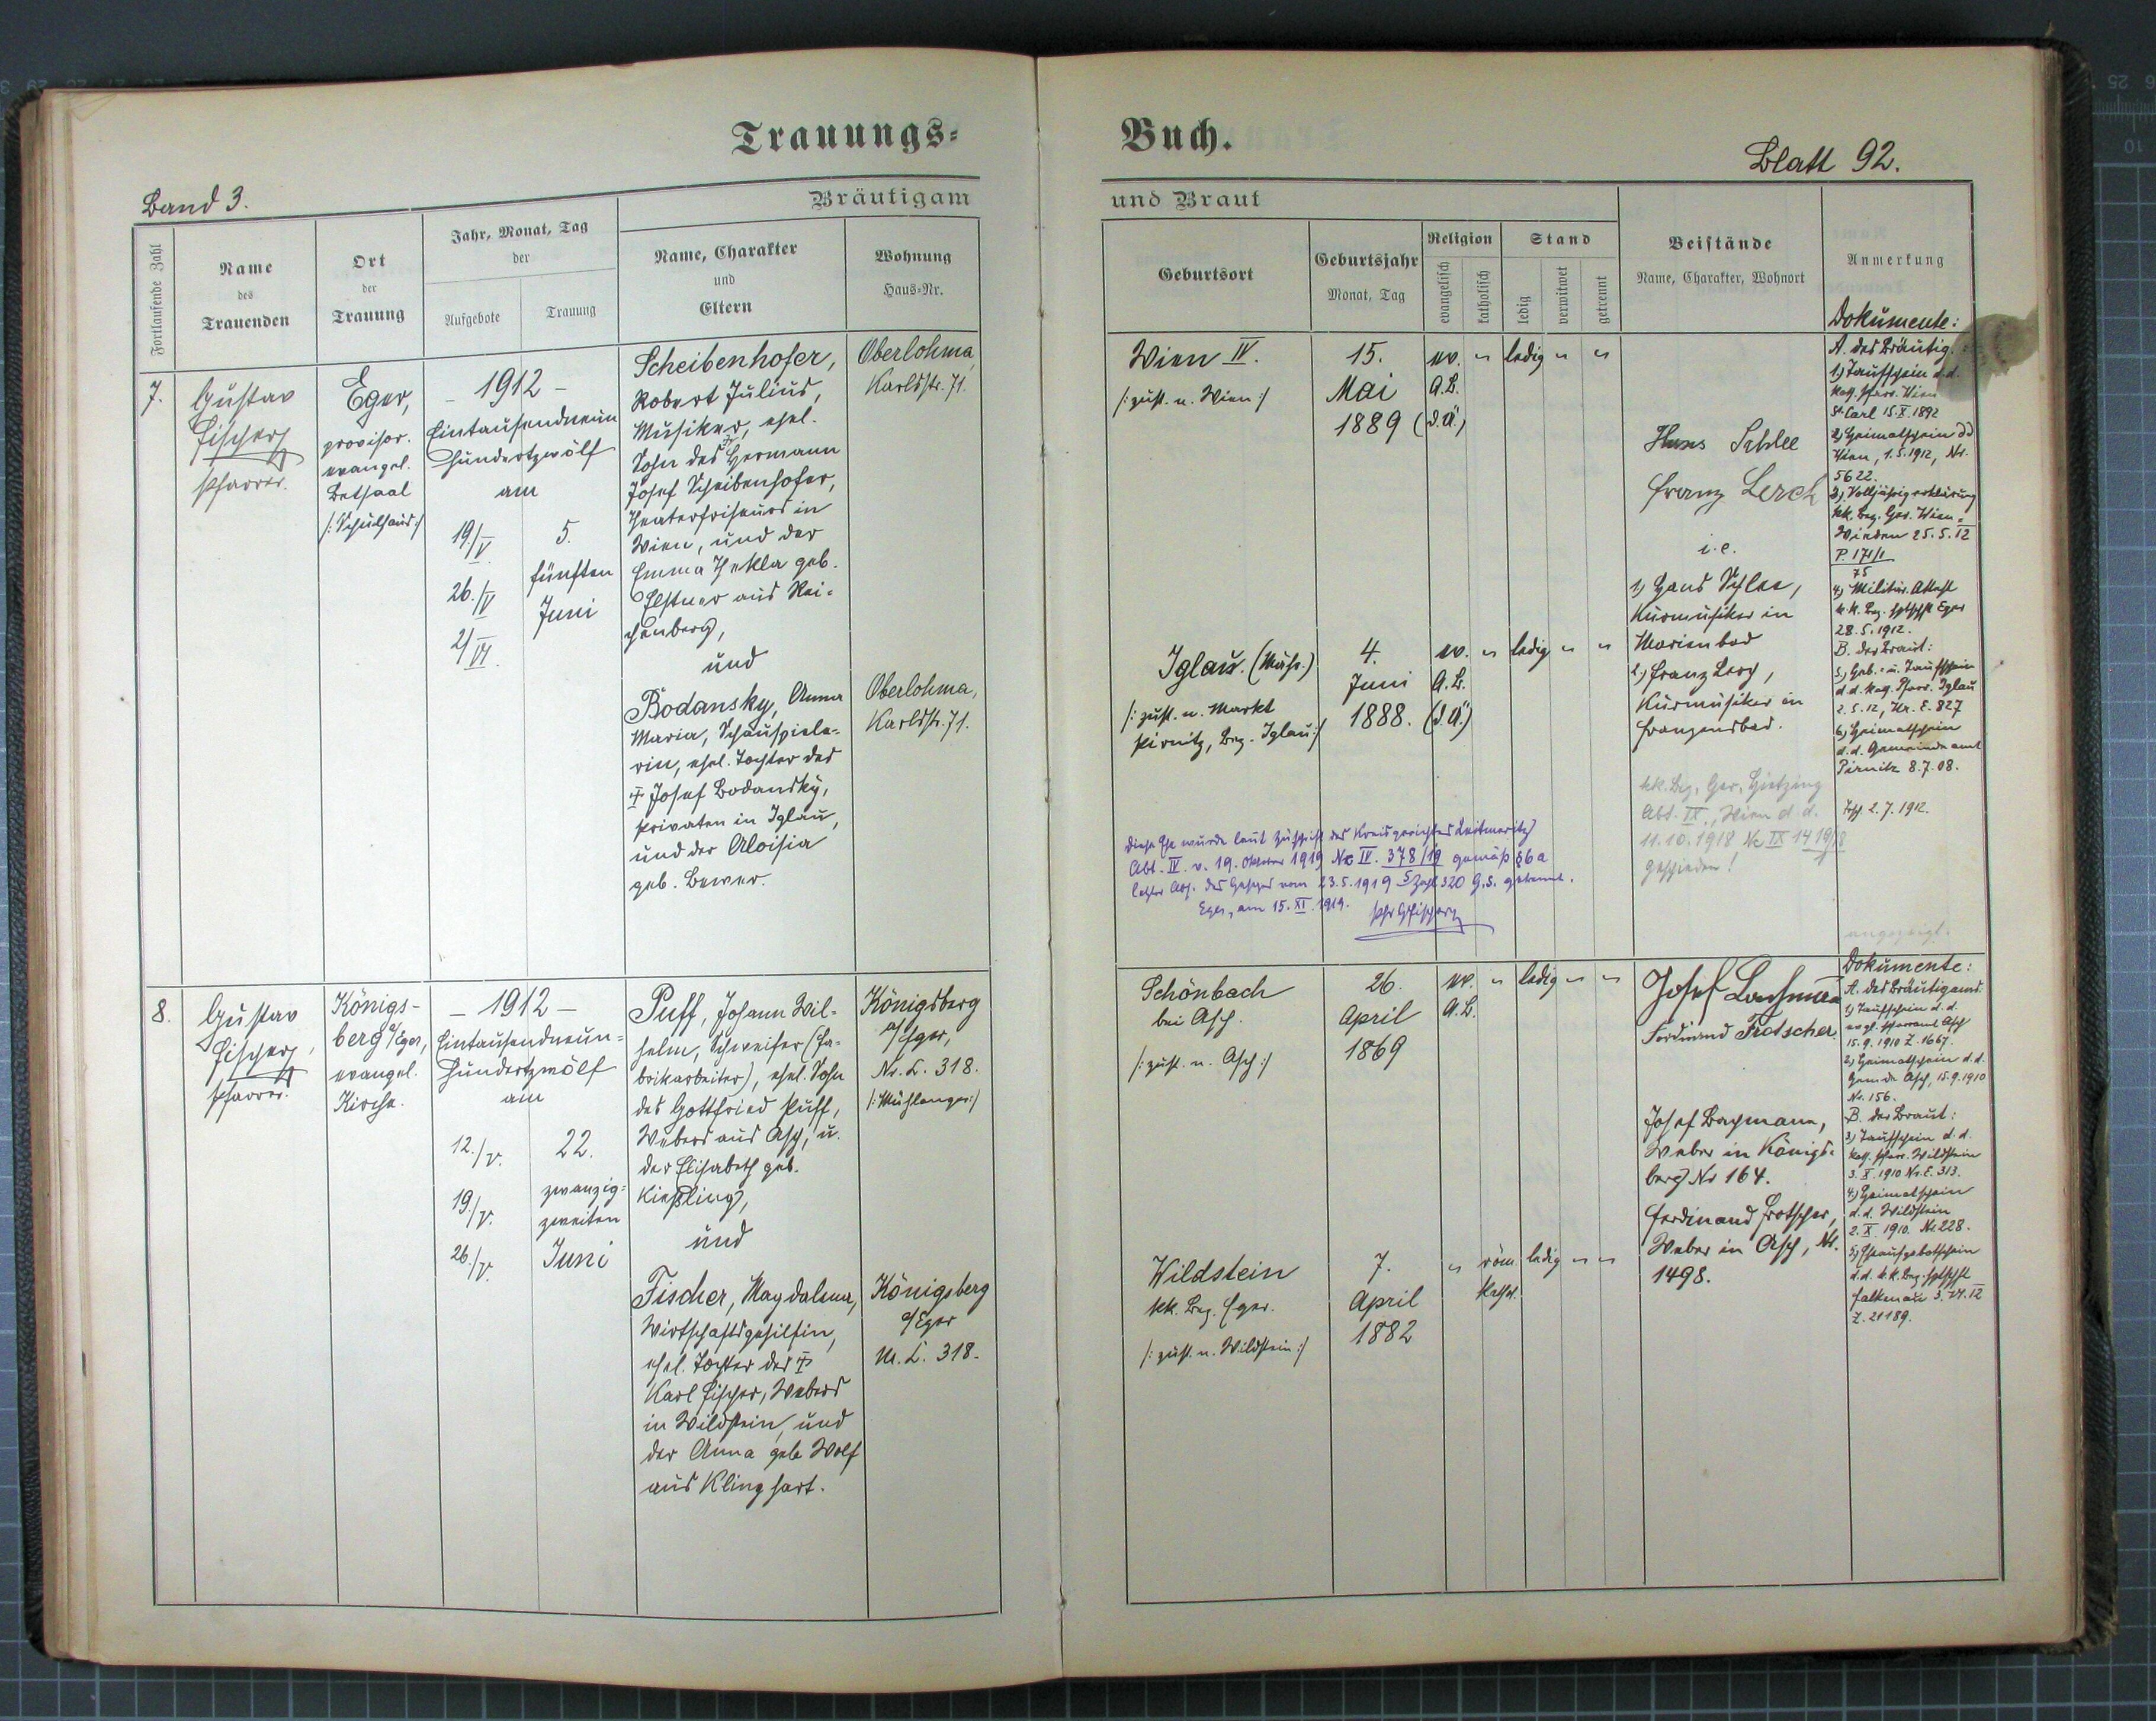 Trauungs-
Buch.
Band 3.
Blatt 92.
Bräutigam
und Braut
Fortlaufende Zahl
Name
des
Trauenden
Ort
der
Trauung
Jahr, Monat, Tag
der
Aufgebote
Trauung
Name, Charakter
und
Eltern
Wohnung
Haus-Nr.
Geburtsort
Geburtsjahr
Monat, Tag
Religion
evangelisch
katholisch
Stand
ledig
verwitwet
getrennt
Beistände
Name, Charakter, Wohnort
Anmerkung
7.
Gustav
Fischer
Pfarrer.
Eger,
provisor.
evangel.
Betsaal
/:Schulhaus:/
– 1912 –
Eintausendneun
hundertzwölf
am
19./V
26./V
2/VI.
5.
fünften
Juni
Scheibenhofer,
Robert Julius,
Musiker, ehel.
Sohn des Hermann
Josef Scheibenhofer,
Theaterfriseurs in
Wien, und der
Emma Thekla geb.
Elstner aus Rei-
chenberg,
und
Bodansky, Anna
Maria, Schauspiele-
rin, ehel. Tochter des
† Josef Bodansky,
Privaten in Iglau,
und der Aloisia
geb. Bewer.
Oberlohma,
Karlsstr. 71.
Oberlohma,
Karlsstr. 71.
Wien IV.
/: zust. n. Wien :/
15.
Mai
1889
ev. " ledig " "
A.B.
(d.ä.)
Iglau. (Mähr.)
/: zust. n. Markt
Pirnitz, Bez. Iglau :/
4.
Juni
1888.
ev. " ledig " "
A.B.
(d.ä.)
Diese Ehe wurde laut Zuschrift des Kreisgerichtes Leitmeritz
Abt. IV v. 19. Oktober 1919 Nc IV. 378/19 gemäß § 6 a
letzter Abs. des Gesetzes vom 23.5.1919 Zahl 320 G.S. getrennt.
Eger, am 15. XI. 1919. Pfr GFischer
Hans Schlee
Franz Lerch
i.e.
1) Hans Schlee,
Kurmusiker in
Marienbad
2.) Franz Lerch,
Kurmusiker in
Franzensbad.
kk. Bez. Ger. Hietzing
Abt. IX., Wien d. d.
11.10.1918 Nc IX 14 19/18
geschieden!
Dokumente:
A. des Bräutig.
1.) Taufschein d.d.
kath. Pfarr. Wien
St. Carl 15.X.1892
2.) Heimatschein dd
Wien, 1.5.1912, Nr.
5622.
3.) Volljährigerklärung
kk. Bez. Ger. Wien-
Wieden 25.5.12
P. 171/1
75
4.) Militär. Attest
k.k. Bez. Hptschft Eger
28.5.1912.
B. der Braut:
5.) Geb.- u. Taufschein
d.d. kath. Pfarr. Iglau
2.5.12, Nr. E. 827
6.) Heimatschein
d.d. Gemeindeamt
Pirnitz 8.7.08.
2.7.1912.
angezeigt.
8.
Gustav
Fischer,
Pfarrer.
Königs-
berg a/Eger,
evangel.
Kirche.
– 1912 –
Eintausendneun-
hundertzwölf
am
12./V.
19./V.
26./V.
22.
zwanzig-
zweiten
Juni
Puff, Johann Wil-
helm, Schweifer (Fa-
brikarbeiter), ehel. Sohn
des Gottfried Puff,
Webers aus Asch, u.
der Elisabeth geb.
Kießling,
und
Fischer, Magdalena,
Wirtschaftsgehilfin,
ehel. Tochter des †
Karl Fischer, Webers
in Wildstein, und
der Anna geb. Wolf
aus Klinghart.
Königsberg
a/Eger,
Nr. C. 318.
/: Mühlanger:/
Königsberg
a/Eger
Nr. C. 318.
Schönbach
bei Asch.
/: zust. n. Asch :/
26.
April
1869
ev. " ledig " "
A.B.
Wildstein
kk. Bez. Eger.
/: zust. n. Wildstein :/
7.
April
1882
" röm. ledig " "
kath.
Josef Bachmann
Ferdinand Frotscher
Josef Bachmann,
Weber in Königs-
berg Nr 164.
Ferdinand Frotscher,
Weber in Asch, Nr.
1498.
Dokumente:
A. des Bräutigams:
1.) Taufschein d.d.
evgl. Pfarramt Asch
15.9.1910 Z. 1667.
2.) Heimatschein d.d.
Gemde Asch, 15.9.1910
Nr. 156.
B. der Braut:
3.) Taufschein d.d.
kath. Pfarr. Wildstein
3.X.1910 Nr. E. 313.
4.) Heimatschein
d.d. Wildstein
2.X.1910. Nr 228.
5.) Eheaufgebotschein
d.d. k.k. Bez. Hptschft
Falkenau 3.VI.12
Z. 21189.